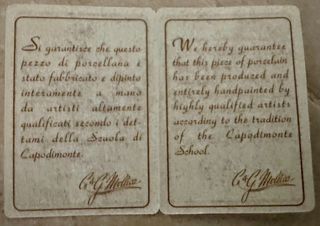 Si garantisce che questo
pezzo di porcellana è
stato fabbricato e dipinto
interamente a mano
da artisti altamente
qualificati secondo i det-
tami della Scuola di
Capodimonte.
We hereby guarantee
that this piece of porcelain
has been produced and
entirely handpainted by
highly qualified artists
according to the tradition
of the Capodimonte
School.